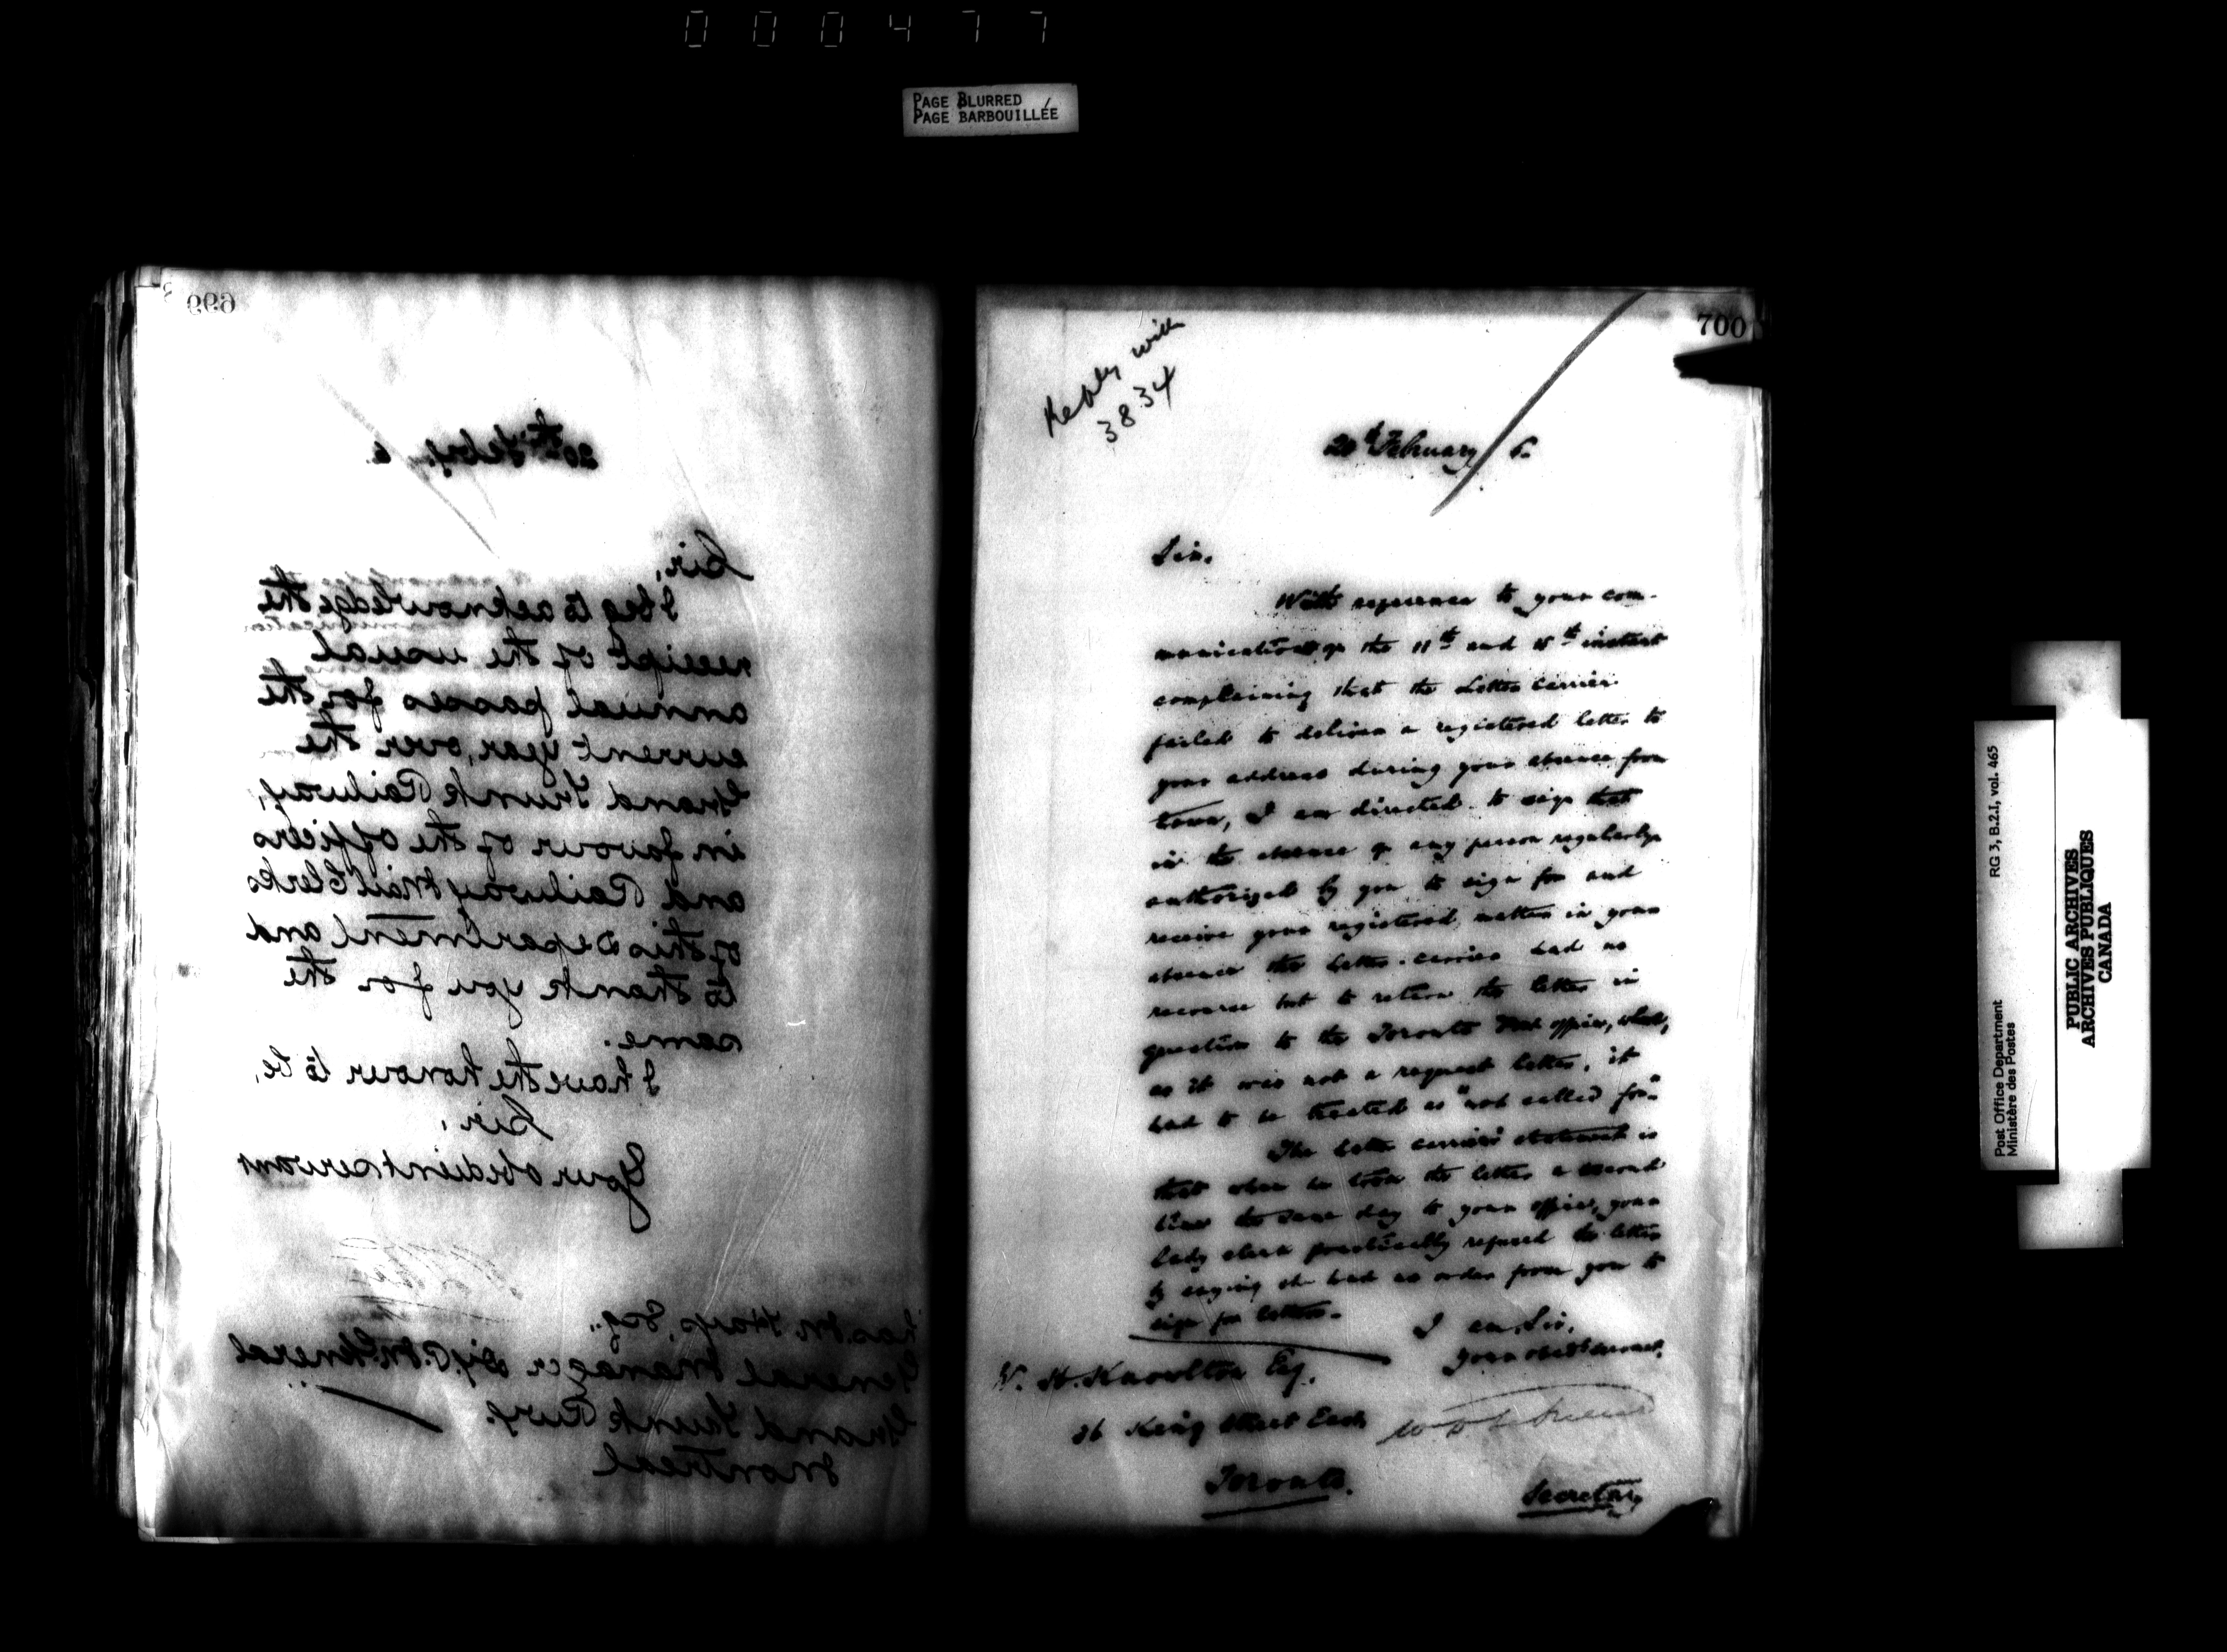 000477
PAGE BLURRED
PAGE BARBOUILLÉE
699
20th Feby. 6.
Sir,
I beg to acknowledge the
receipt of the usual
annual passes for the
current year, over the
Grand Trunk Railway,
in favour of the officers
and Railway Mail Clerks
of this Department and
to thank you for the
same.
I have the honour to be,
Sir,
Your obedient servant
Chas. M. Hays, Esq.,
General Manager Dy. P. M. General
Grand Trunk Rwy.
Montreal
700
Reply with
3834
20th February 6.
Sir,
With reference to your com-
munications of the 11th and 15th instant
complaining that the Letter Carrier
failed to deliver a registered letter to
your address during your absence from
town, I am directed to say that
in the absence of any person regularly
authorized by you to sign for and
receive your registered matter in your
absence the letter-carrier had no
recourse but to return the letter in
question to the Toronto Post office, where,
as it was not a request letter, it
had to be treated as "not called for."
The letter carrier's statement is
that when he took the letter a second
time the same day to your office, your
lady clerk practically refused the letter
by saying she had no order from you to
sign for letters.
I am, Sir,
Your obedt servant,
W. H. Knowlton Esq.
36 King Street East
Toronto.
Secretary
Post Office Department
Ministère des Postes
RG 3, B.2.I, vol. 465
PUBLIC ARCHIVES
ARCHIVES PUBLIQUES
CANADA